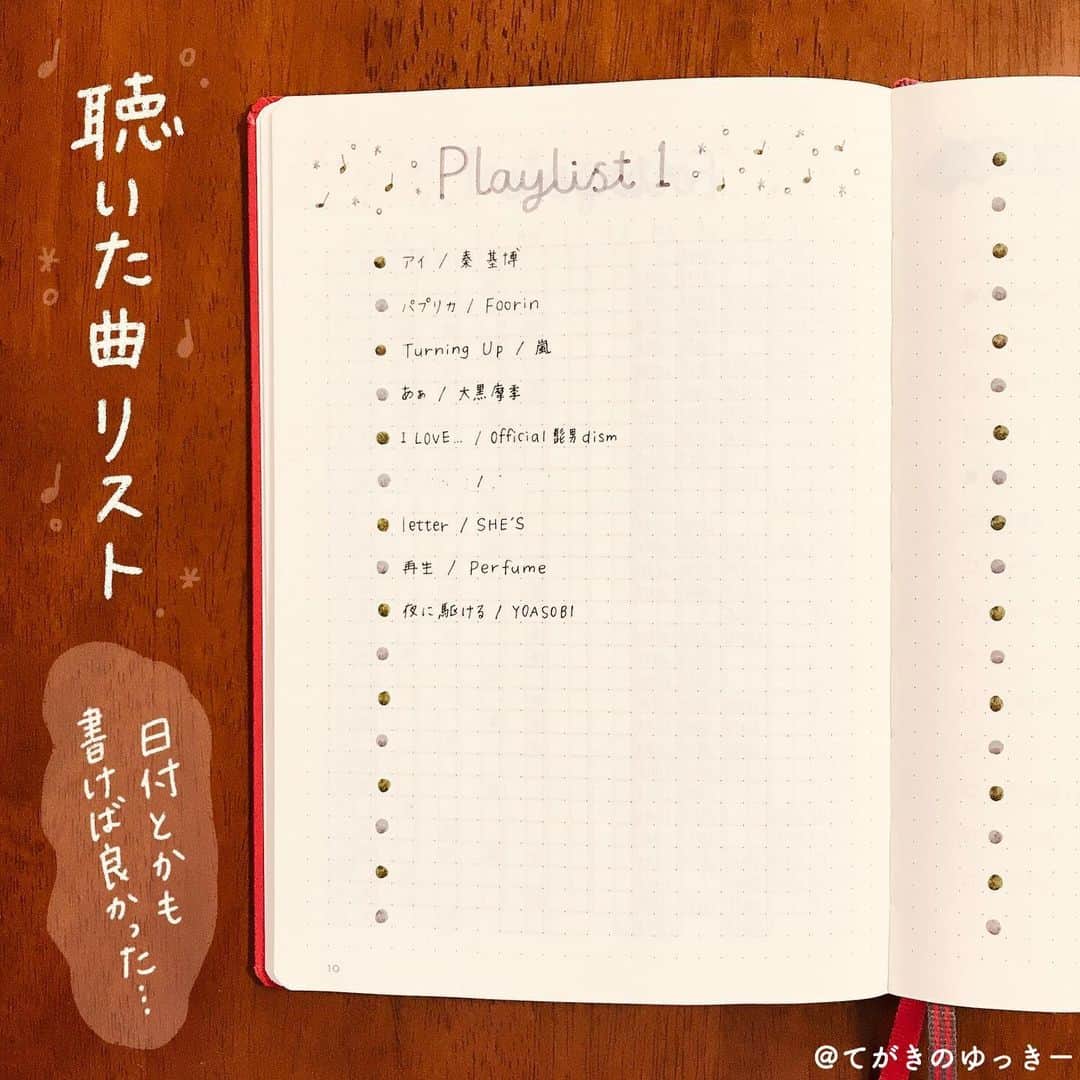 聴いた曲リスト
日付とかも
書けば良かった…
Playlist 1
アイ / 秦 基博
パプリカ / Foorin
Turning Up / 嵐
あぁ / 大黒摩季
I LOVE... / Official髭男dism
/
letter / SHE'S
再生 / Perfume
夜に駆ける / YOASOBI
10
@てがきのゆっきー